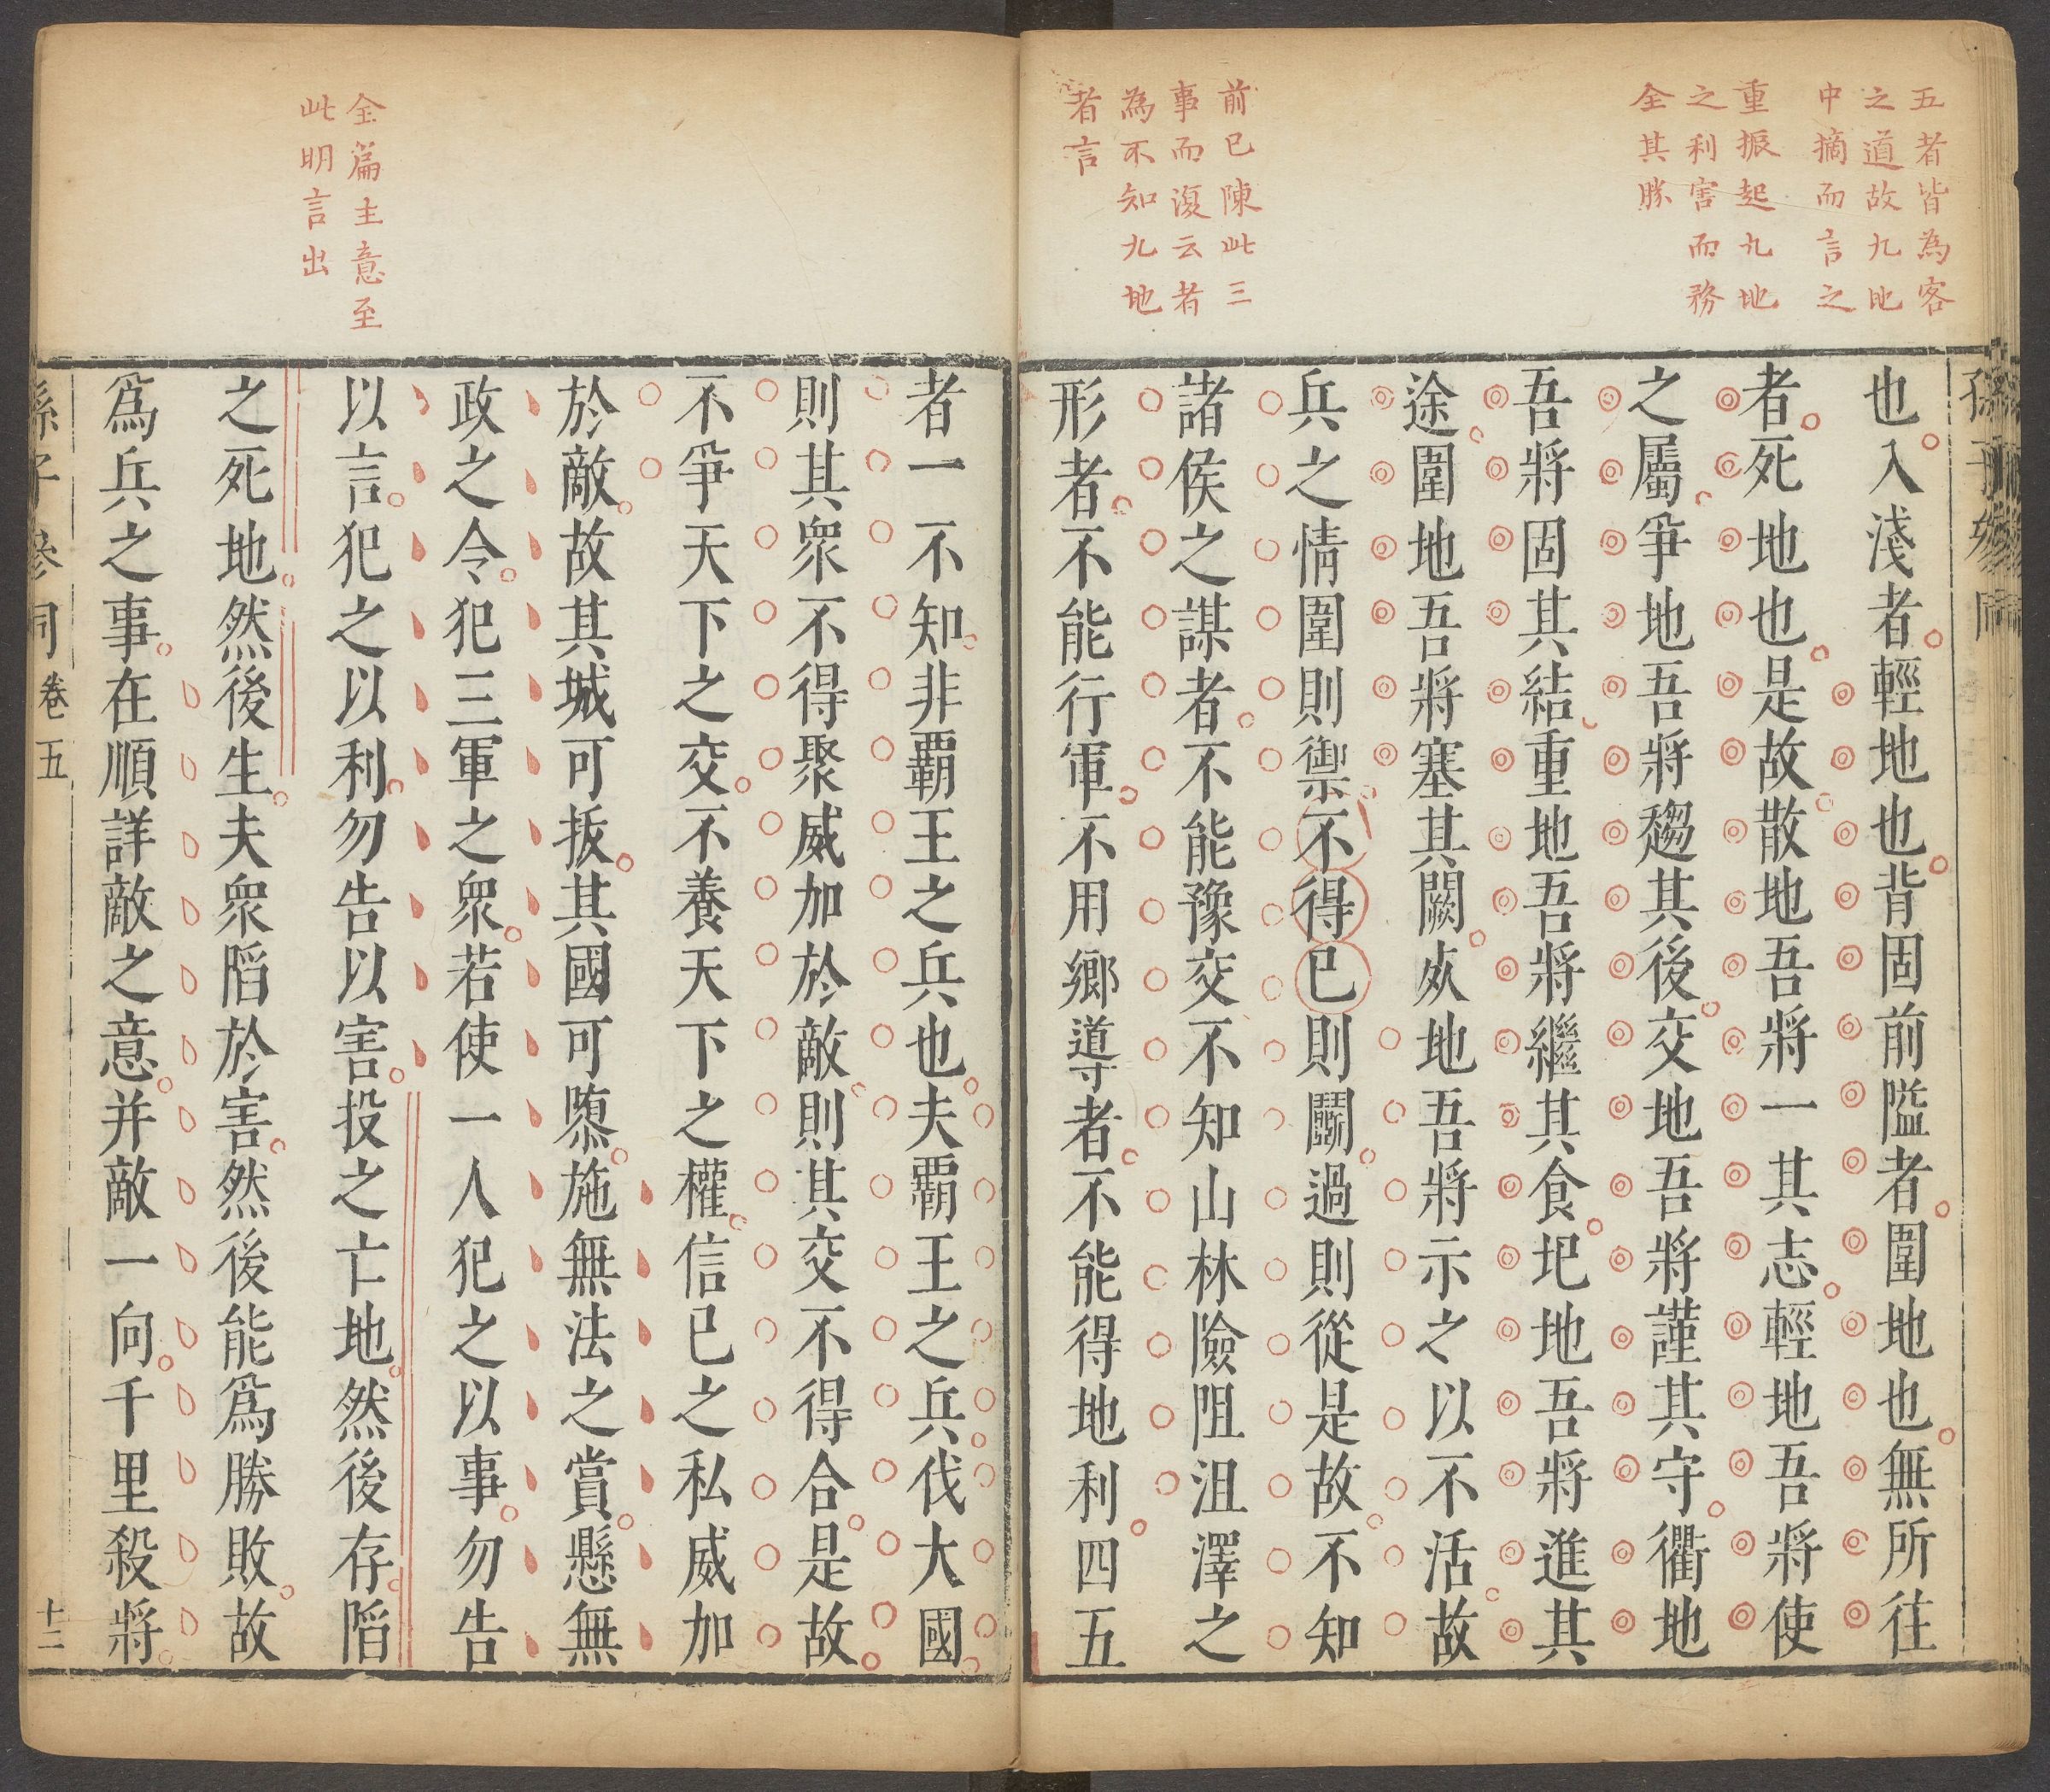 五者皆為客
之道故九地
中摘而言之
重振起九地
之利害而務
全其勝
前已陳此三
事而復云者
為不知九地
者言
也入淺者輕地也背固前隘者圍地也無所往
者死地也是故散地吾將一其志輕地吾將使
之屬爭地吾將趨其後交地吾將謹其守衢地
吾將固其結重地吾將繼其食圯地吾將進其
途圍地吾將塞其闕死地吾將示之以不活故
兵之情圍則禦不得已則鬭過則從是故不知
諸侯之謀者不能豫交不知山林險阻沮澤之
形者不能行軍不用鄉導者不能得地利四五
全篇主意至
此明言出
者一不知非霸王之兵也夫霸王之兵伐大國
則其眾不得聚威加於敵則其交不得合是故
不爭天下之交不養天下之權信己之私威加
於敵故其城可拔其國可隳施無法之賞懸無
政之令犯三軍之眾若使一人犯之以事勿告
以言犯之以利勿告以害投之亡地然後存陷
之死地然後生夫眾陷於害然後能爲勝敗故
爲兵之事在順詳敵之意并敵一向千里殺將
孫子參同 卷五 十二